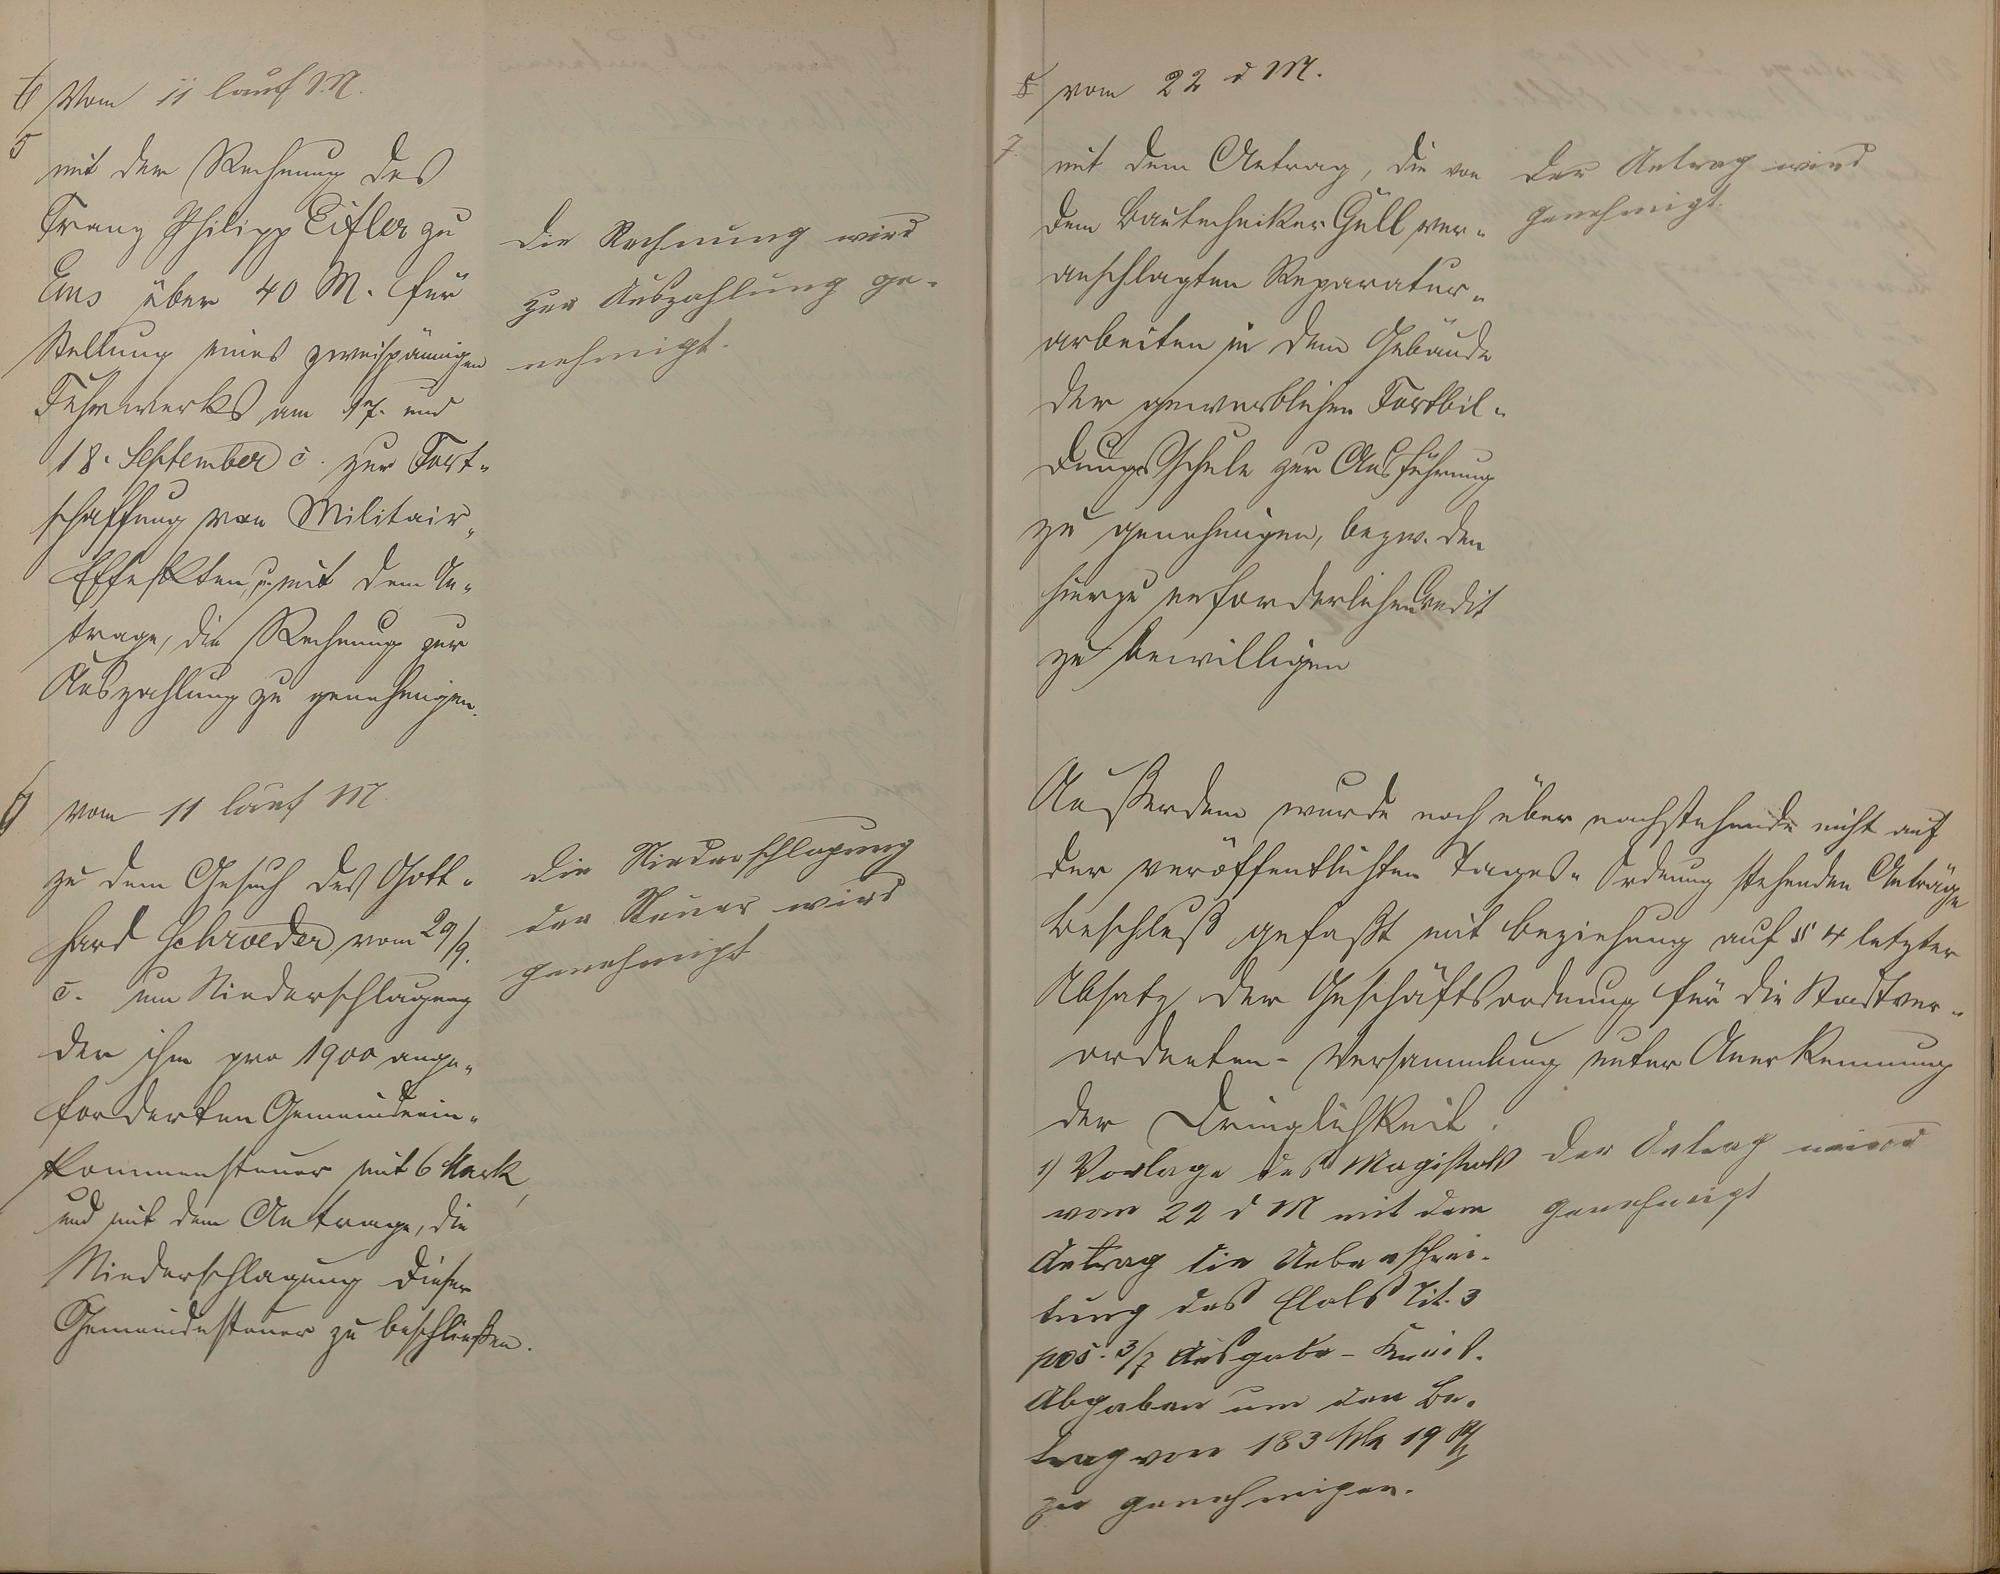 6 Vom 11 lauf. M.
5
mit der Rechnung des
Franz Philipp Eifler zu
Ems über 40 M. für
Stellung eines zweispännigen
Fuhrwerks am 17. und
18. September c. zur Fort-
schaffung von Militair-
Effekten, u. mit dem An-
trage, die Rechnung zur
Auszahlung zu genehmigen.
Die Rechnung wird
zur Auszahlung ge-
nehmigt.
6
vom 11 lauf M.
zu dem Gesuch des Gott-
hard Schroeder vom 29/9.
c. um Niederschlagung
der ihm pro 1900 ange-
forderten Gemeindeein-
kommensteuer mit 6 Mark,
und mit dem Antrage, die
Niederschlagung dieser
Gemeindesteuer zu beschließen.
Die Niederschlagung
der Steuer wird
genehmigt
8 vom 22 d M.
7.
mit dem Antrag, die von
dem Bautechniker Güll ver-
anschlagten Reparatur-
arbeiten in dem Gebäude
der gewerblichen Fortbil-
dungsschule zur Ausführung
zu genehmigen, bezw. den
hierzu erforderlichen Credit
zu bewilligen
Der Antrag wird
genehmigt.
Außerdem wurde noch über nachstehende nicht auf
der veröffentlichten Tages-Ordnung stehenden Anträge
Beschluß gefaßt mit Beziehung auf § 4 letzter
Absatz der Geschäftsordnung für die Stadtver-
ordneten-Versammlung unter Anerkennung
der Dringlichkeit.
1) Vorlage des Magistrats
vom 22 d M mit dem
Antrag die Ueberschrei-
tung des Etats Tit. 3
pos. 3/7 Ausgabe - Kreis-
Abgaben um den Be-
trag von 183 Mk 19 Pf
zu genehmigen.
Der Antrag wird
genehmigt